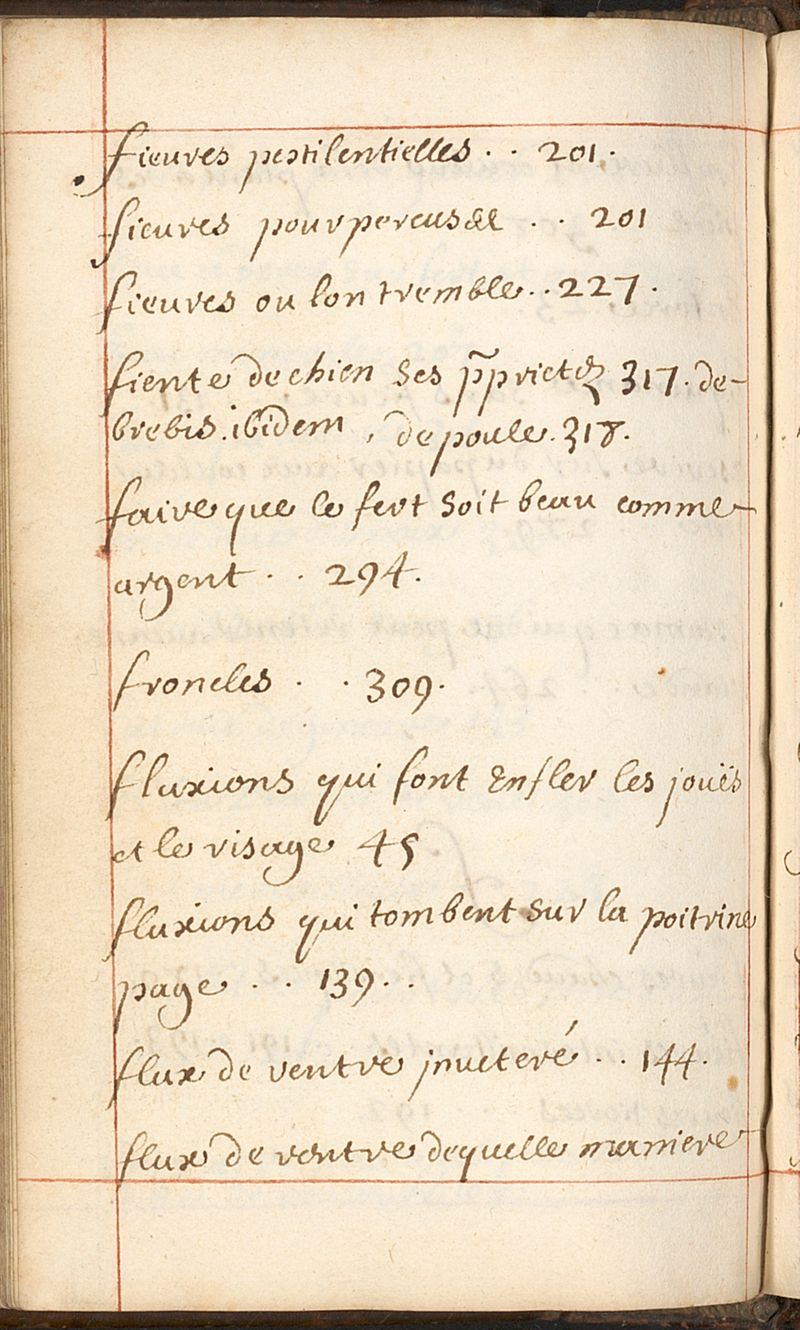 fieures pestilentielles . . 201.
fieures pourpereuses . . 201
fieures ou lon tremble . . 227.
fiente de chien ses p̃prietez 317. de
brebis . ibidem , de poule . 318.
faire que le fert soit beau comme
argent . . 294.
froncles . . 309.
fluxions qui font enfler les jouës
et le visage 45
fluxions qui tombent sur la poitrine
page . . 139 . .
flux de ventre jnueteré . . 144.
flux de ventre de quelle maniere